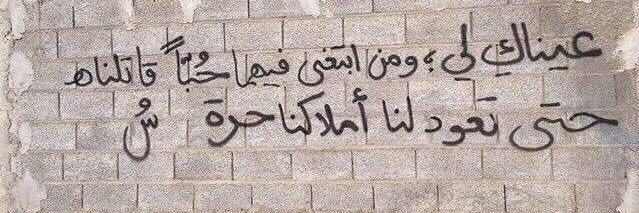 عيناكِ لي ؛ ومن ابتغى فيها حُبّاً قاتلناه
حتى تعود لنا أملاكنا حرة سُ